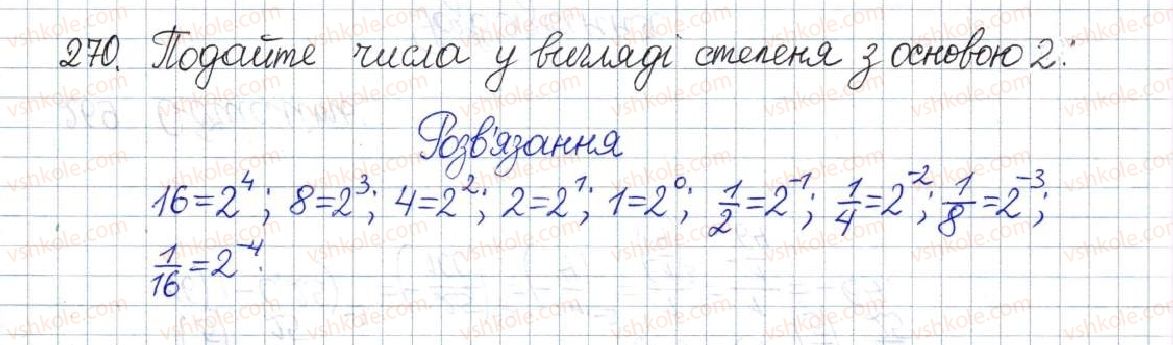 270. Подайте числа у вигляді степеня з основою 2:
Розв'язання
16=2⁴; 8=2³; 4=2²; 2=2¹; 1=2⁰; 1/2=2⁻¹; 1/4=2⁻²; 1/8=2⁻³;
1/16=2⁻⁴.